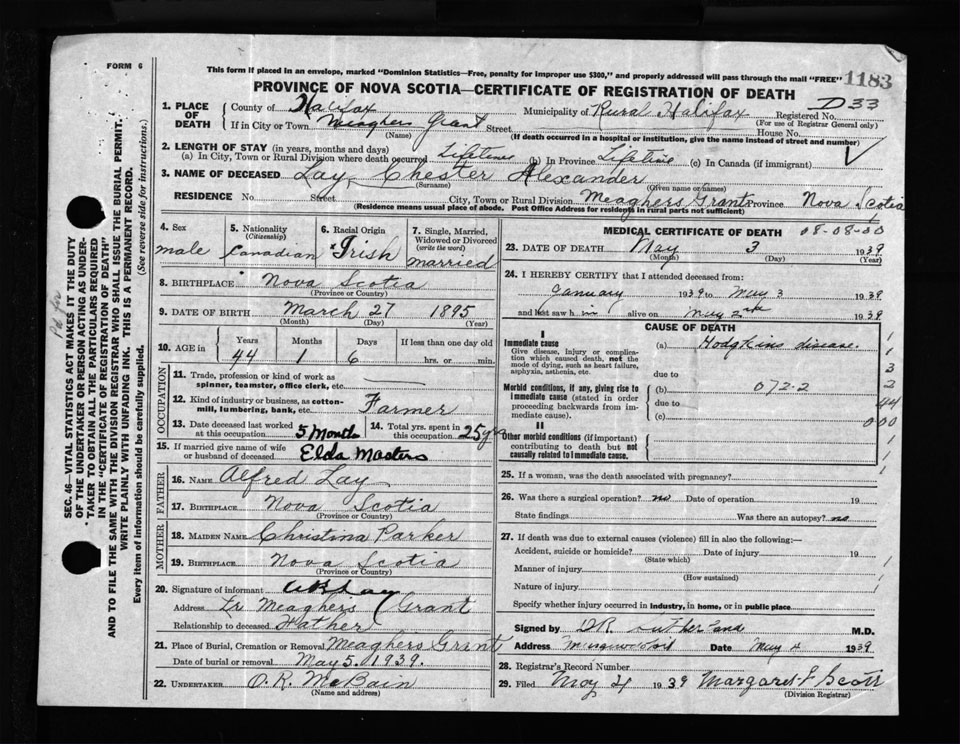 FORM 6
This form if placed in an envelope, marked "Dominion Statistics—Free, penalty for improper use $300," and properly addressed will pass through the mail "FREE"
1183
PROVINCE OF NOVA SCOTIA—CERTIFICATE OF REGISTRATION OF DEATH
D 33
1. PLACE OF DEATH County of Halifax Municipality of Rural Halifax Registered No.
(For use of Registrar General only)
If in City or Town Meaghers Grant Street House No.
(Name) (If death occurred in a hospital or institution, give the name instead of street and number)
2. LENGTH OF STAY (in years, months and days)
(a) In City, Town or Rural Division where death occurred Lifetime (b) In Province Lifetime (c) In Canada (if immigrant)
3. NAME OF DECEASED Lay, Chester Alexander
(Surname) (Given name or names)
RESIDENCE No. Street City, Town or Rural Division Meaghers Grant Province Nova Scotia
(Residence means usual place of abode. Post Office Address for residents in rural parts not sufficient)
4. Sex male
5. Nationality (Citizenship) Canadian
6. Racial Origin Irish
7. Single, Married, Widowed or Divorced (write the word) married
8. BIRTHPLACE Nova Scotia
(Province or Country)
9. DATE OF BIRTH March 27 1895
(Month) (Day) (Year)
10. AGE in Years Months Days If less than one day old
44 1 6 hrs. or min.
OCCUPATION
11. Trade, profession or kind of work as
spinner, teamster, office clerk, etc.
12. Kind of industry or business, as cotton-
mill, lumbering, bank, etc. Farmer
13. Date deceased last worked at this occupation 5 Months
14. Total yrs. spent in this occupation 25 yrs
15. If married give name of wife
or husband of deceased Elda Masters
FATHER
16. NAME Alfred Lay
17. BIRTHPLACE Nova Scotia
(Province or Country)
MOTHER
18. MAIDEN NAME Christina Parker
19. BIRTHPLACE Nova Scotia
(Province or Country)
20. Signature of informant
Address Meaghers Grant
Relationship to deceased Father
21. Place of Burial, Cremation or Removal Meaghers Grant
Date of burial or removal May 5. 1939.
22. UNDERTAKER O. R. McBain
(Name and address)
MEDICAL CERTIFICATE OF DEATH 08-08-00
23. DATE OF DEATH May 3 1939
(Month) (Day) (Year)
24. I HEREBY CERTIFY that I attended deceased from:
January 1939 to May 3 1939
and last saw him alive on May 2nd 1939
CAUSE OF DEATH
I
Immediate cause (a) Hodgkins disease.
Give disease, injury or complica-
tion which caused death, not the
mode of dying, such as heart failure,
asphyxia, asthenia, etc. due to
Morbid conditions, if any, giving rise to (b) 072-2
immediate cause (stated in order due to
proceeding backwards from im-
mediate cause). (c)
II
Other morbid conditions (if important)
contributing to death but not
causally related to immediate cause.
1
1
3
2
44
000
1
25. If a woman, was the death associated with pregnancy?
26. Was there a surgical operation? no Date of operation 19
State findings Was there an autopsy? no
27. If death was due to external causes (violence) fill in also the following:—
Accident, suicide or homicide? Date of injury 19
(State which)
Manner of injury
(How sustained)
Nature of injury
Specify whether injury occurred in industry, in home, or in public place
Signed by DR. Sutherland M.D.
Address Date May 4 1939
28. Registrar's Record Number
29. Filed May 4 1939 Margaret F Scott
(Division Registrar)
SEC. 46—VITAL STATISTICS ACT MAKES IT THE DUTY
OF THE UNDERTAKER OR PERSON ACTING AS UNDER-
TAKER TO OBTAIN ALL THE PARTICULARS REQUIRED
IN THE "CERTIFICATE OF REGISTRATION OF DEATH"
AND TO FILE THE SAME WITH THE DIVISION REGISTRAR WHO SHALL ISSUE THE BURIAL PERMIT.
WRITE PLAINLY WITH UNFADING INK. THIS IS A PERMANENT RECORD.
Every item of information should be carefully supplied. (See reverse side for instructions.)